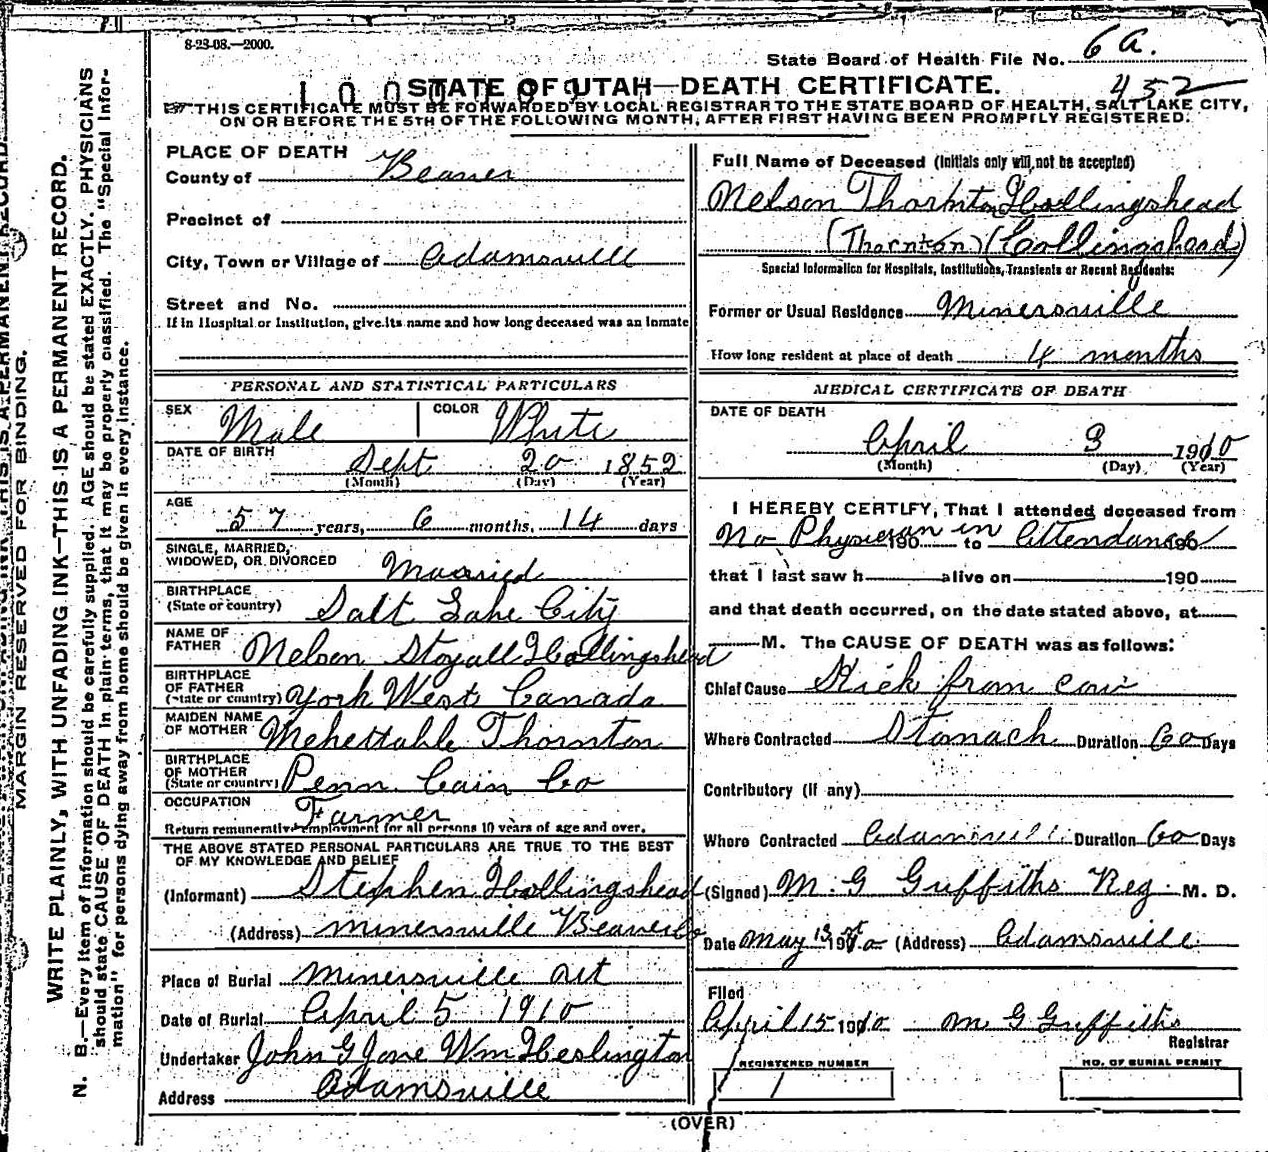 8-23-08.—2000.
State Board of Health File No. 6 a.
STATE OF UTAH—DEATH CERTIFICATE. 452
THIS CERTIFICATE MUST BE FORWARDED BY LOCAL REGISTRAR TO THE STATE BOARD OF HEALTH, SALT LAKE CITY,
ON OR BEFORE THE 5TH OF THE FOLLOWING MONTH, AFTER FIRST HAVING BEEN PROMPTLY REGISTERED.
MARGIN RESERVED FOR BINDING.
WRITE PLAINLY, WITH UNFADING INK—THIS IS A PERMANENT RECORD.
N. B.—Every item of information should be carefully supplied. AGE should be stated EXACTLY. PHYSICIANS
should state CAUSE OF DEATH in plain terms, that it may be properly classified. The "Special Infor-
mation" for persons dying away from home should be given in every instance.
PLACE OF DEATH
County of Beaver
Precinct of
City, Town or Village of Adamsville
Street and No.
If in Hospital or Institution, give its name and how long deceased was an inmate
PERSONAL AND STATISTICAL PARTICULARS
SEX Male COLOR White
DATE OF BIRTH Sept 20 1852
(Month) (Day) (Year)
AGE
57 years, 6 months, 14 days
SINGLE, MARRIED,
WIDOWED, OR DIVORCED Married
BIRTHPLACE
(State or country) Salt Lake City
NAME OF
FATHER Nelson Stoyall Hollingshead
BIRTHPLACE
OF FATHER
(State or country) York West Canada
MAIDEN NAME
OF MOTHER Mehettable Thornton
BIRTHPLACE
OF MOTHER
(State or country) Penn Cain Co
OCCUPATION Farmer
Return remunerative employment for all persons 10 years of age and over.
THE ABOVE STATED PERSONAL PARTICULARS ARE TRUE TO THE BEST
OF MY KNOWLEDGE AND BELIEF
(Informant) Stephen Hollingshead
(Address) Minersville Beaver Co
Place of Burial Minersville Ut
Date of Burial April 5 1910
Undertaker John G Jone Wm Heslington
Address Adamsville
Full Name of Deceased (Initials only will not be accepted)
Nelson Thornton Hollingshead
(Thornton) (Hollingshead)
Special Information for Hospitals, Institutions, Transients or Recent Residents:
Former or Usual Residence Minersville
How long resident at place of death 4 months
MEDICAL CERTIFICATE OF DEATH
DATE OF DEATH
April 3 1910
(Month) (Day) (Year)
I HEREBY CERTIFY, That I attended deceased from
No Physician in 190 to Attendance 190
that I last saw h alive on 190
and that death occurred, on the date stated above, at
M. The CAUSE OF DEATH was as follows:
Chief Cause Kick from cow
Where Contracted Stomach Duration 60 Days
Contributory (if any)
Where Contracted Adamsville Duration 60 Days
(Signed) M. G Griffiths Reg. M. D.
Date May 1910 (Address) Adamsville
Filed
April 15 1910 M G Griffiths
Registrar
REGISTERED NUMBER
1
NO. OF BURIAL PERMIT
(OVER)